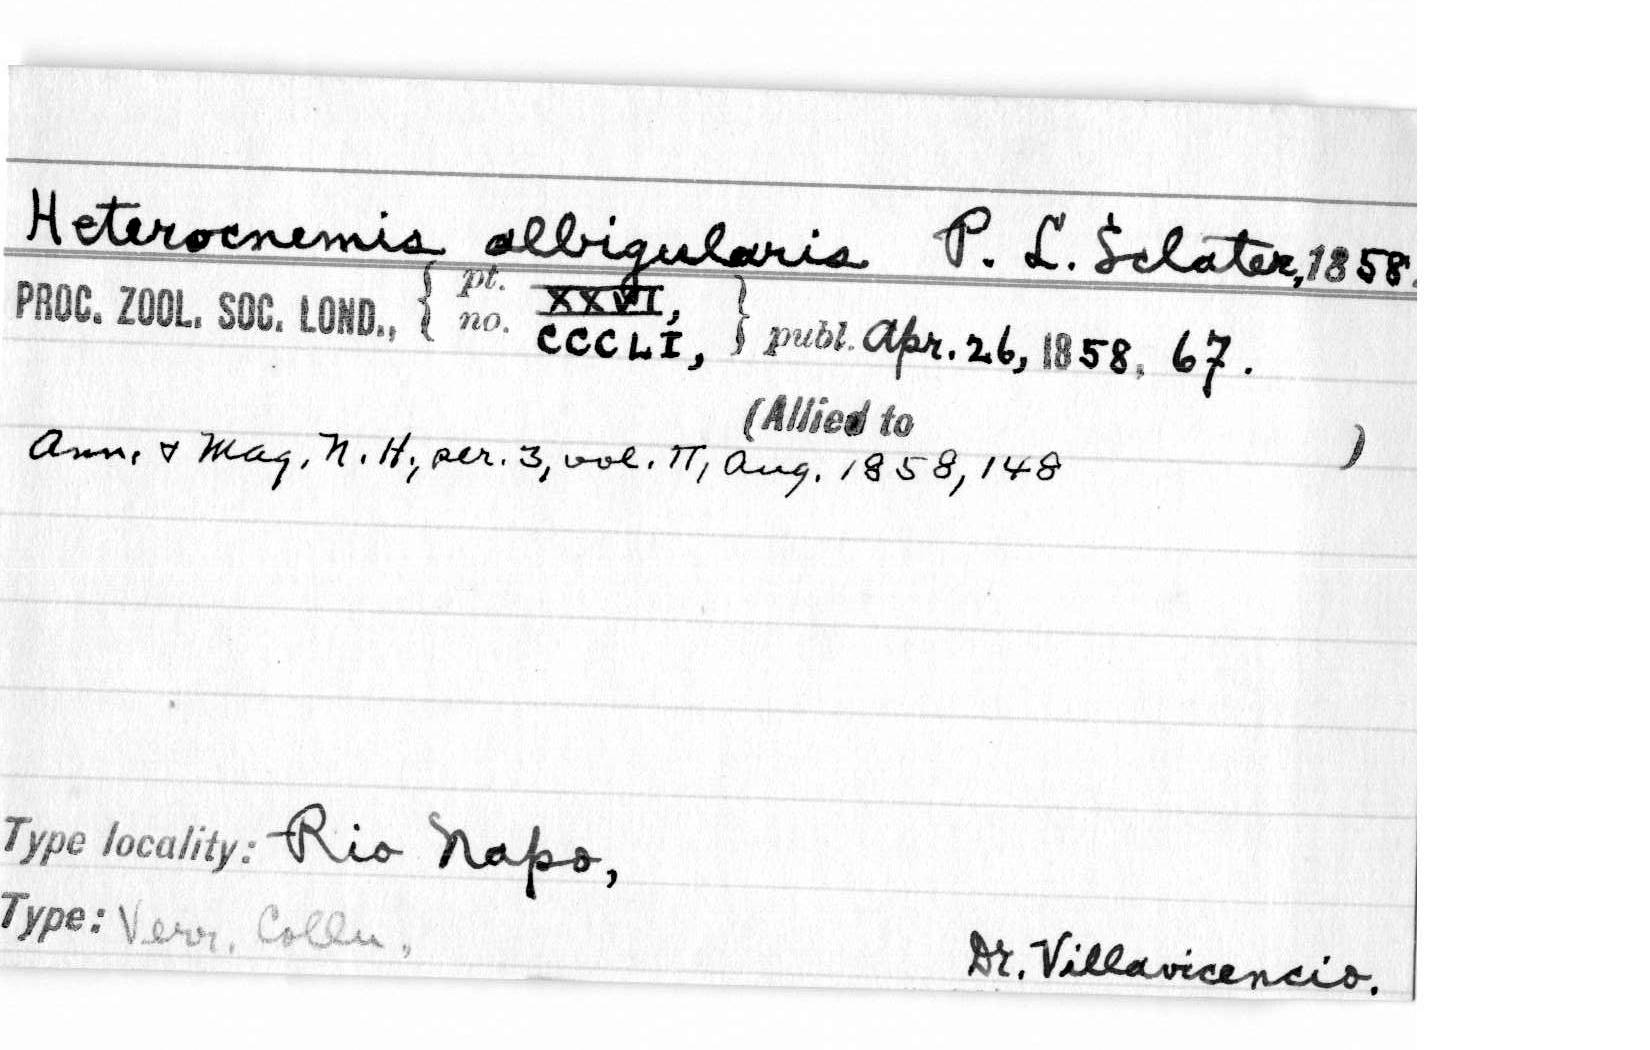 Heterocnemis albigularis P. L. Sclater, 1858.
PROC. ZOOL. SOC. LOND., { pt. XXVI, no. CCCLI, } publ. Apr. 26, 1858, 67.
(Allied to )
Ann. & Mag. N. H., ser. 3, vol. II, Aug. 1858, 148
Type locality: Rio Napo,
Type: Verr. Colln,
Dr. Villavicencio.